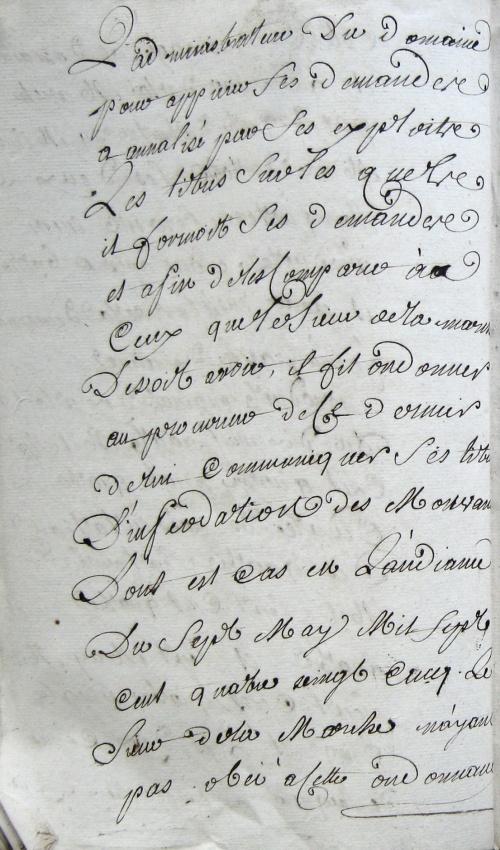 L'administrateur Du domaine
pour appuier ses demandes
a annalisé par ses exploits
Les titres sur les quels
il formoit ses demandes
et afin de les Comparer à
Ceux que le sieur de la marche
Disoit avoir, il fit ordonner
au procureur de Ce dernier
de lui Communiquer ses titres
D'infeodation des Mouvan
Dont est Cas en L'audiance
Du Sept May Mil Sept
Cent quatre vingt Cinq. Le
Sieur de la Marche n'ayant
pas obéi a Cette ordonnance